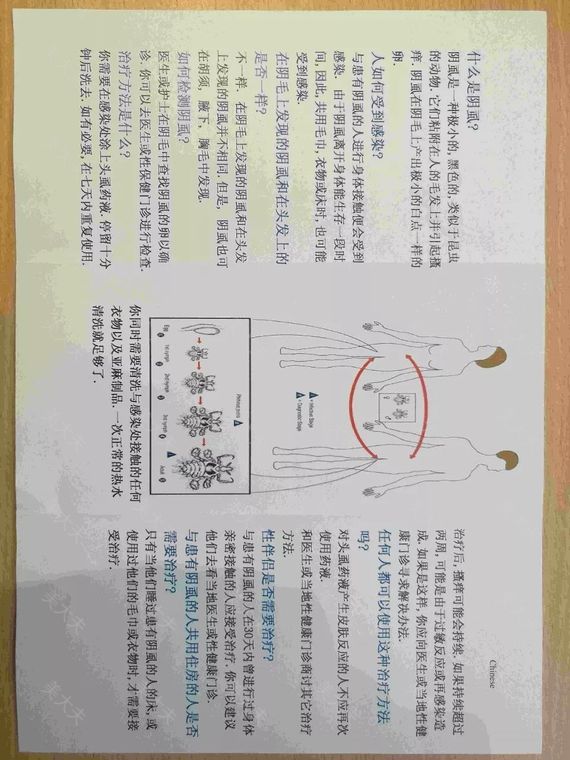 Chinese
什么是阴虱?
阴虱是一种极小的, 黑色的, 类似于昆虫
的动物. 它们粘附在人的毛发上并引起搔
痒. 阴虱在阴毛上产出极小的白点一样的
卵.
人如何受到感染?
与患有阴虱的人进行身体接触便会受到
感染. 由于阴虱离开身体能生存一段时
间, 因此, 共用毛巾, 衣物或床时, 也可能
受到感染.
在阴毛上发现的阴虱和在头发上的
是否一样?
不一样. 在阴毛上发现的阴虱和在头发
上发现的阴虱并不相同. 但是, 阴虱也可
在胡须, 腋下, 胸毛中发现.
如何检测阴虱?
医生或护士在阴毛中查找阴虱的卵以确
诊. 你可以去医生或性保健门诊进行检查.
治疗方法是什么?
你需要在感染处涂上头虱药液, 停留十分
钟后洗去. 如有必要, 在七天内重复使用.
= Infected Stage
= Diagnostic Stage
Phthirus pubis
Egg
1st nymph
2nd nymph
3rd nymph
Adult
你同时需要清洗与感染处接触的任何
衣物以及亚麻制品. 一次正常的热水
清洗就足够了.
治疗后, 搔痒可能会持续. 如果持续超过
两周, 可能是由于过敏反应或再感染造
成. 如果是这样, 你应向医生或当地性健
康门诊寻求解决办法.
任何人都可以使用这种治疗方法
吗?
对头虱药液产生皮肤反应的人不应再次
使用药液.
和医生或当地性健康门诊商讨其它治疗
方法.
性伴侣是否需要治疗?
与患有阴虱的人在30天内曾进行过身体
亲密接触的人应接受治疗. 你可以建议
他们去看当地医生或性健康门诊.
与患有阴虱的人共用住房的人是否
需要治疗?
只有当他们睡过患有阴虱的人的床, 或
使用过他们的毛巾或衣物时, 才需要接
受治疗.